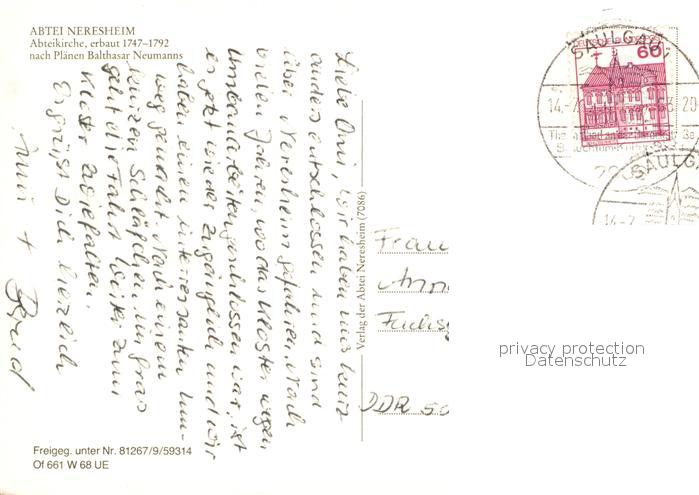 ABTEI NERESHEIM
Abteikirche, erbaut 1747–1792
nach Plänen Balthasar Neumanns
Liebe Omi, wir haben uns kurz
anders entschlossen und sind
über Neresheim gefahren. Nach
vielen Jahren, wo das Kloster wegen
Umbauarbeiten geschlossen war, ist
es jetzt wieder zugänglich und wir
haben einen interessanten Um-
weg gemacht. Nach einem
kurzen Schläfchen im Gras
geht die Fahrt weiter zum
Kloster Zwiefalten.
Es grüßt Dich herzlich
+ Bernd
Verlag der Abtei Neresheim (7086)
Frau
Fuchs
DDR 50
SAULGAU
60
14.-7.
20
SAULGA
14.-7
privacy protection
Datenschutz
Freigeg. unter Nr. 81267/9/59314
Of 661 W 68 UE